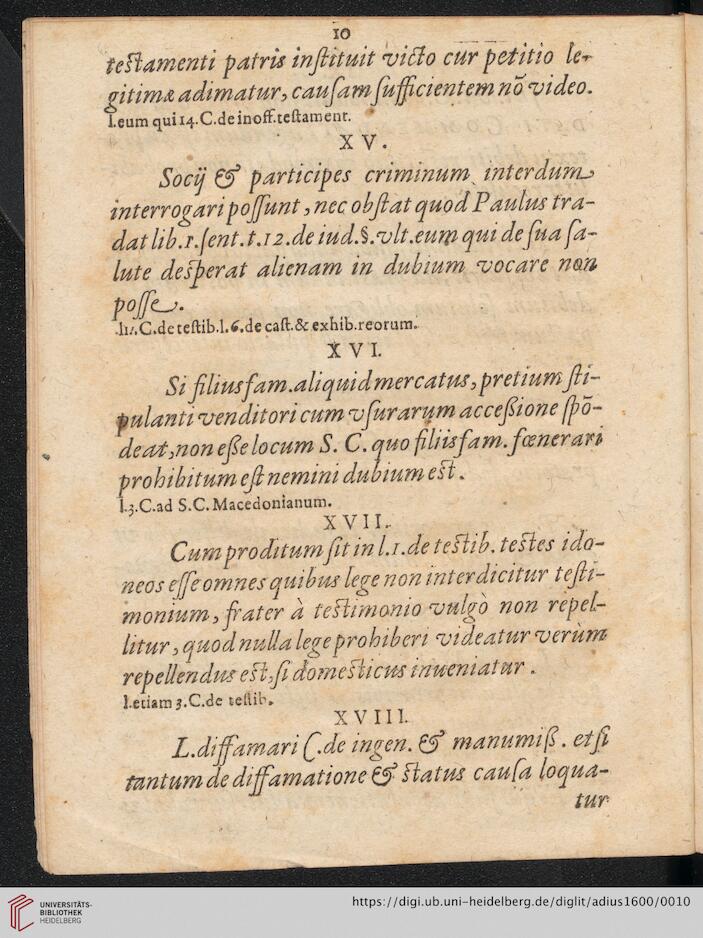 10
testamenti patris inſtituit victo cur petitio le-
gitimæ adimatur, cauſam ſufficientem nõ video.
l.eum qui 14. C.de inoff.teſtament.
XV.
Socij & participes criminum interdum
interrogari poſſunt, nec obſtat quod Paulus tra-
dat lib.1.ſent.t.12.de iud.§.vlt.eum qui de ſua ſa-
lute deſperat alienam in dubium vocare non
poſſe.
C.de teſtib.l.6.de caſt.& exhib.reorum.
XVI.
Si filiusfam.aliquid mercatus, pretium ſti-
pulanti venditori cum vſurarum acceßione ſpõ-
deat, non eße locum S. C. quo filiisfam. fœnerari
prohibitum eſt nemini dubium est.
l.3.C.ad S.C. Macedonianum.
XVII.
Cum proditum ſit in l.1.de testib. testes ido-
neos eſſe omnes quibus lege non interdicitur teſti-
monium, frater à testimonio vulgò non repel-
litur, quod nulla lege prohiberi videatur verùm
repellendus est, ſi domesticus inueniatur.
l.etiam 3.C.de teſtib.
XVIII.
L.diffamari C.de ingen. & manumiß. etſi
tantum de diffamatione & status cauſa loqua-
tur
UNIVERSITÄTS-
BIBLIOTHEK
HEIDELBERG
https://digi.ub.uni-heidelberg.de/diglit/adius1600/0010